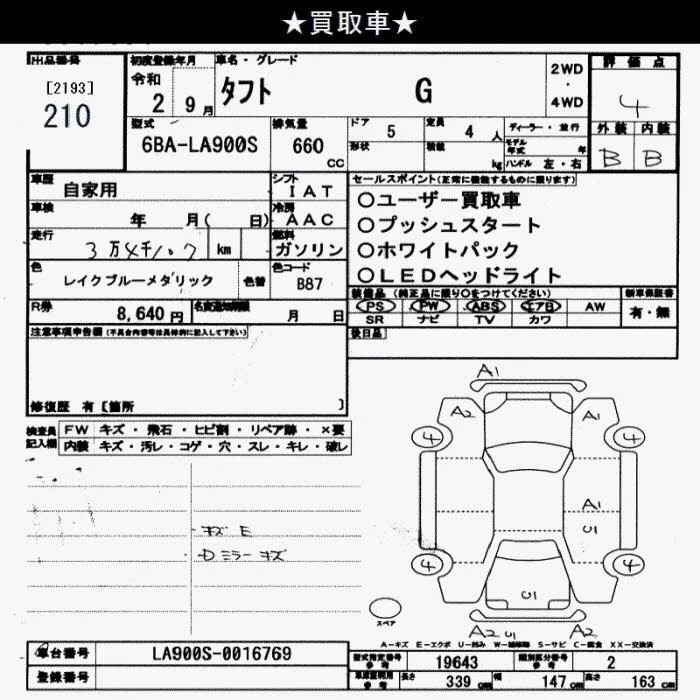 ★買取車★
出品番号
[2193]
210
初度登録年月
令和
2 9月
車名・グレード
タフト G
2WD
・
4WD
評価点
4
外装 内装
B B
型式
6BA-LA900S
排気量
660
cc
ドア 5
定員 4 人
形状 積載 kg
ディーラー・並行
モデル年式 年
ハンドル 左・右
車歴 自家用
シフト IAT
車検 年 月( 日)
冷房 AAC
走行 km
燃料 ガソリン
色 レイクブルーメタリック
色替
色コード B87
R券 8,640円
名変期限 月 日
セールスポイント(正常に機能するものに限ります)
○ユーザー買取車
○プッシュスタート
○ホワイトパック
○LEDヘッドライト
装備品 (純正品に限り○をつけてください)
PS PW ABS エアB AW
SR ナビ TV カワ
新車保証書
有・無
後日品
注意事項申告欄(不具合内容等は具体的に記入して下さい)
修復歴 有〔箇所 〕
検査員記入欄
FW キズ・飛石・ヒビ割・リペア跡・×要
内装 キズ・汚レ・コゲ・穴・スレ・キレ・破レ
キズ E
D ミラー キズ
A1
A2 A1
4 4
A1
U1
4 4
U1
A2 U1 A2
スペア
A-キズ E-エクボ U-凹み W-補修跡 S-サビ C-腐食 XX-交換済
車台番号 LA900S-0016769
登録番号
型式指定番号 参考 19643
類別区分番号 参考 2
車検証明用 参考
長さ 339 cm
幅 147 cm
高さ 163 cm